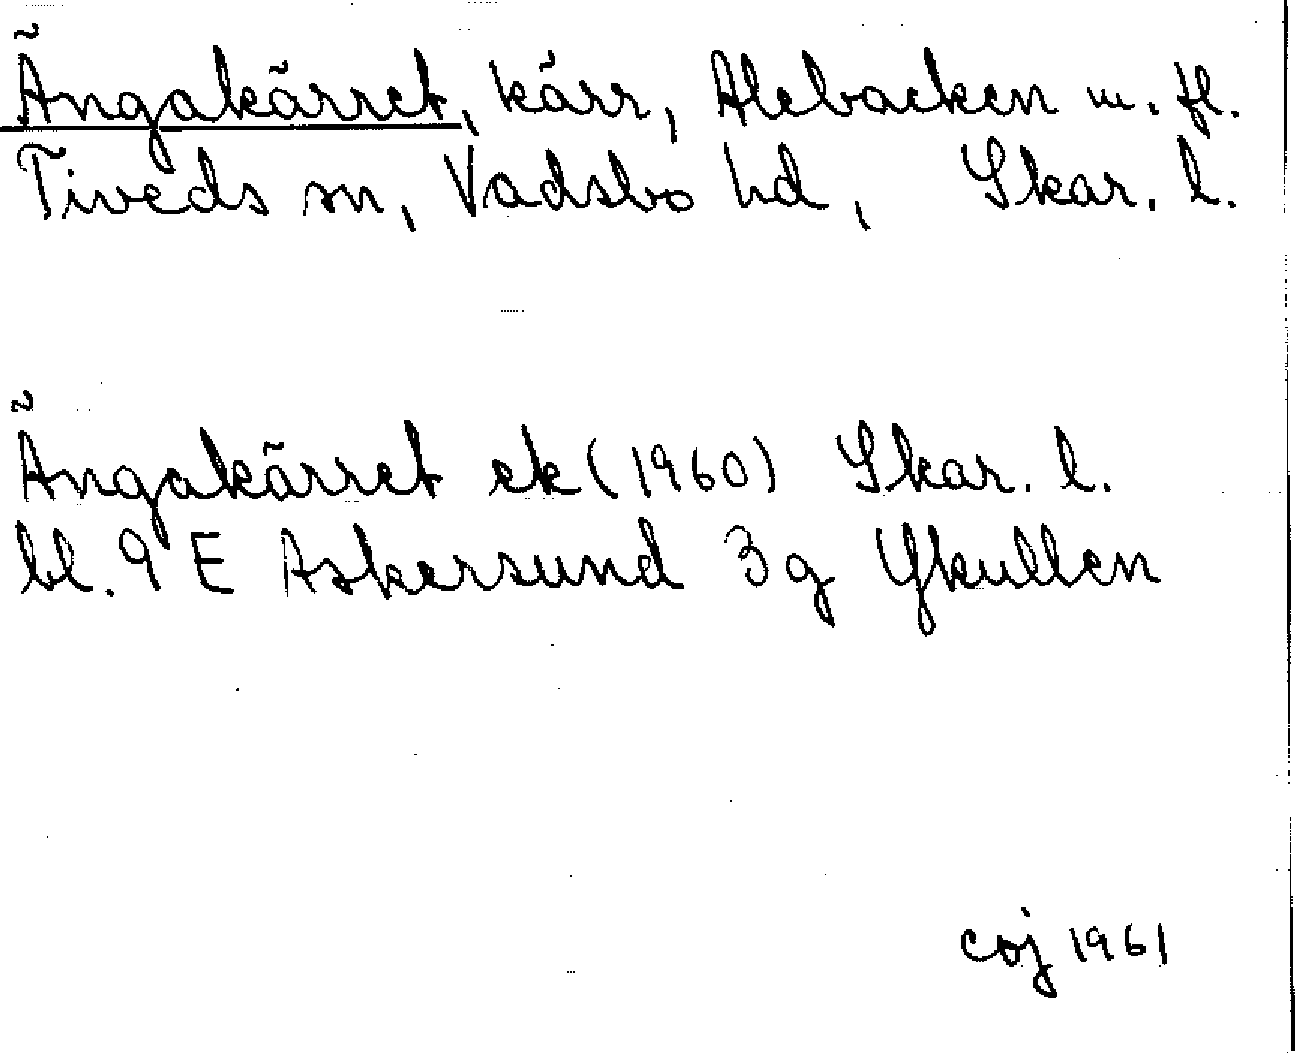 Ängakärret, kärr, Alebacken m. fl.
Tiveds sn, Vadsbo hd, Skar. l.
Ängakärret ek (1960) Skar. l.
bl. 9 E Askersund 3 g Ykullen
coj 1961